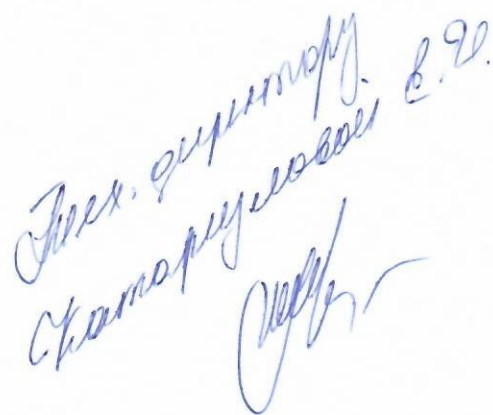 Тех. директору
Катаржуловой Е.И.